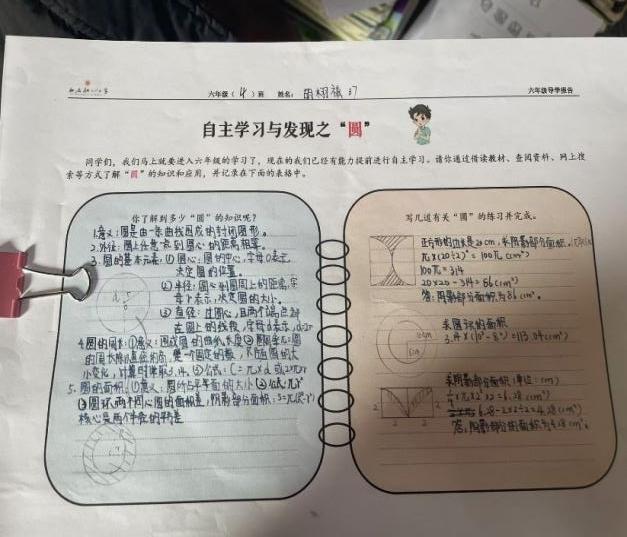 六年级（4）班 姓名： 37
六年级导学报告
自主学习与发现之“圆”
同学们，我们马上就要进入六年级的学习了，现在的我们已经有能力提前进行自主学习。请你通过借读教材、查阅资料、网上搜
索等方式了解“圆”的知识和应用，并记录在下面的表格中。
你了解到多少“圆”的知识呢？
1.意义：圆是由一条曲线围成的封闭图形。
2.外征：圆上任意一点到圆心的距离相等。
3.圆的基本元素：①圆心：圆的中心，字母O表示，
决定圆的位置。
②半径：圆心到圆周上的距离，字
母r表示，决定圆的大小。
③直径：过圆心，且两个端点都
在圆上的线段，字母d表示，d=2r
4.圆的周长：①意义：围成圆的曲线长度②圆周率π：圆
的周长除以直径的商，是一个固定的数，不随圆的大
小变化，计算时取3.14。③公式：C=π×d或2π×r
5.圆的面积：①意义：圆所占平面的大小②公式：πr²
③圆环：两个同心圆的面积差，阴影部分面积：S=π(R²-r²)
核心是两个半径的平方差
写几道有关“圆”的练习并完成。
正方形的边长是20cm，求阴影部分面积。
π×(20÷2)²=100π(cm²)
100π=314
20×20-314=86(cm²)
答：阴影部分面积为86cm²。
求圆环的面积
3.14×(10²-8²)=113.04(cm²)
求阴影部分面积（单位：cm）
×π×2²×2=6.28(cm²)
6.28-2×2÷2=4.28(cm²)
答：阴影部分的面积为4.28cm²。
2
2
2 2